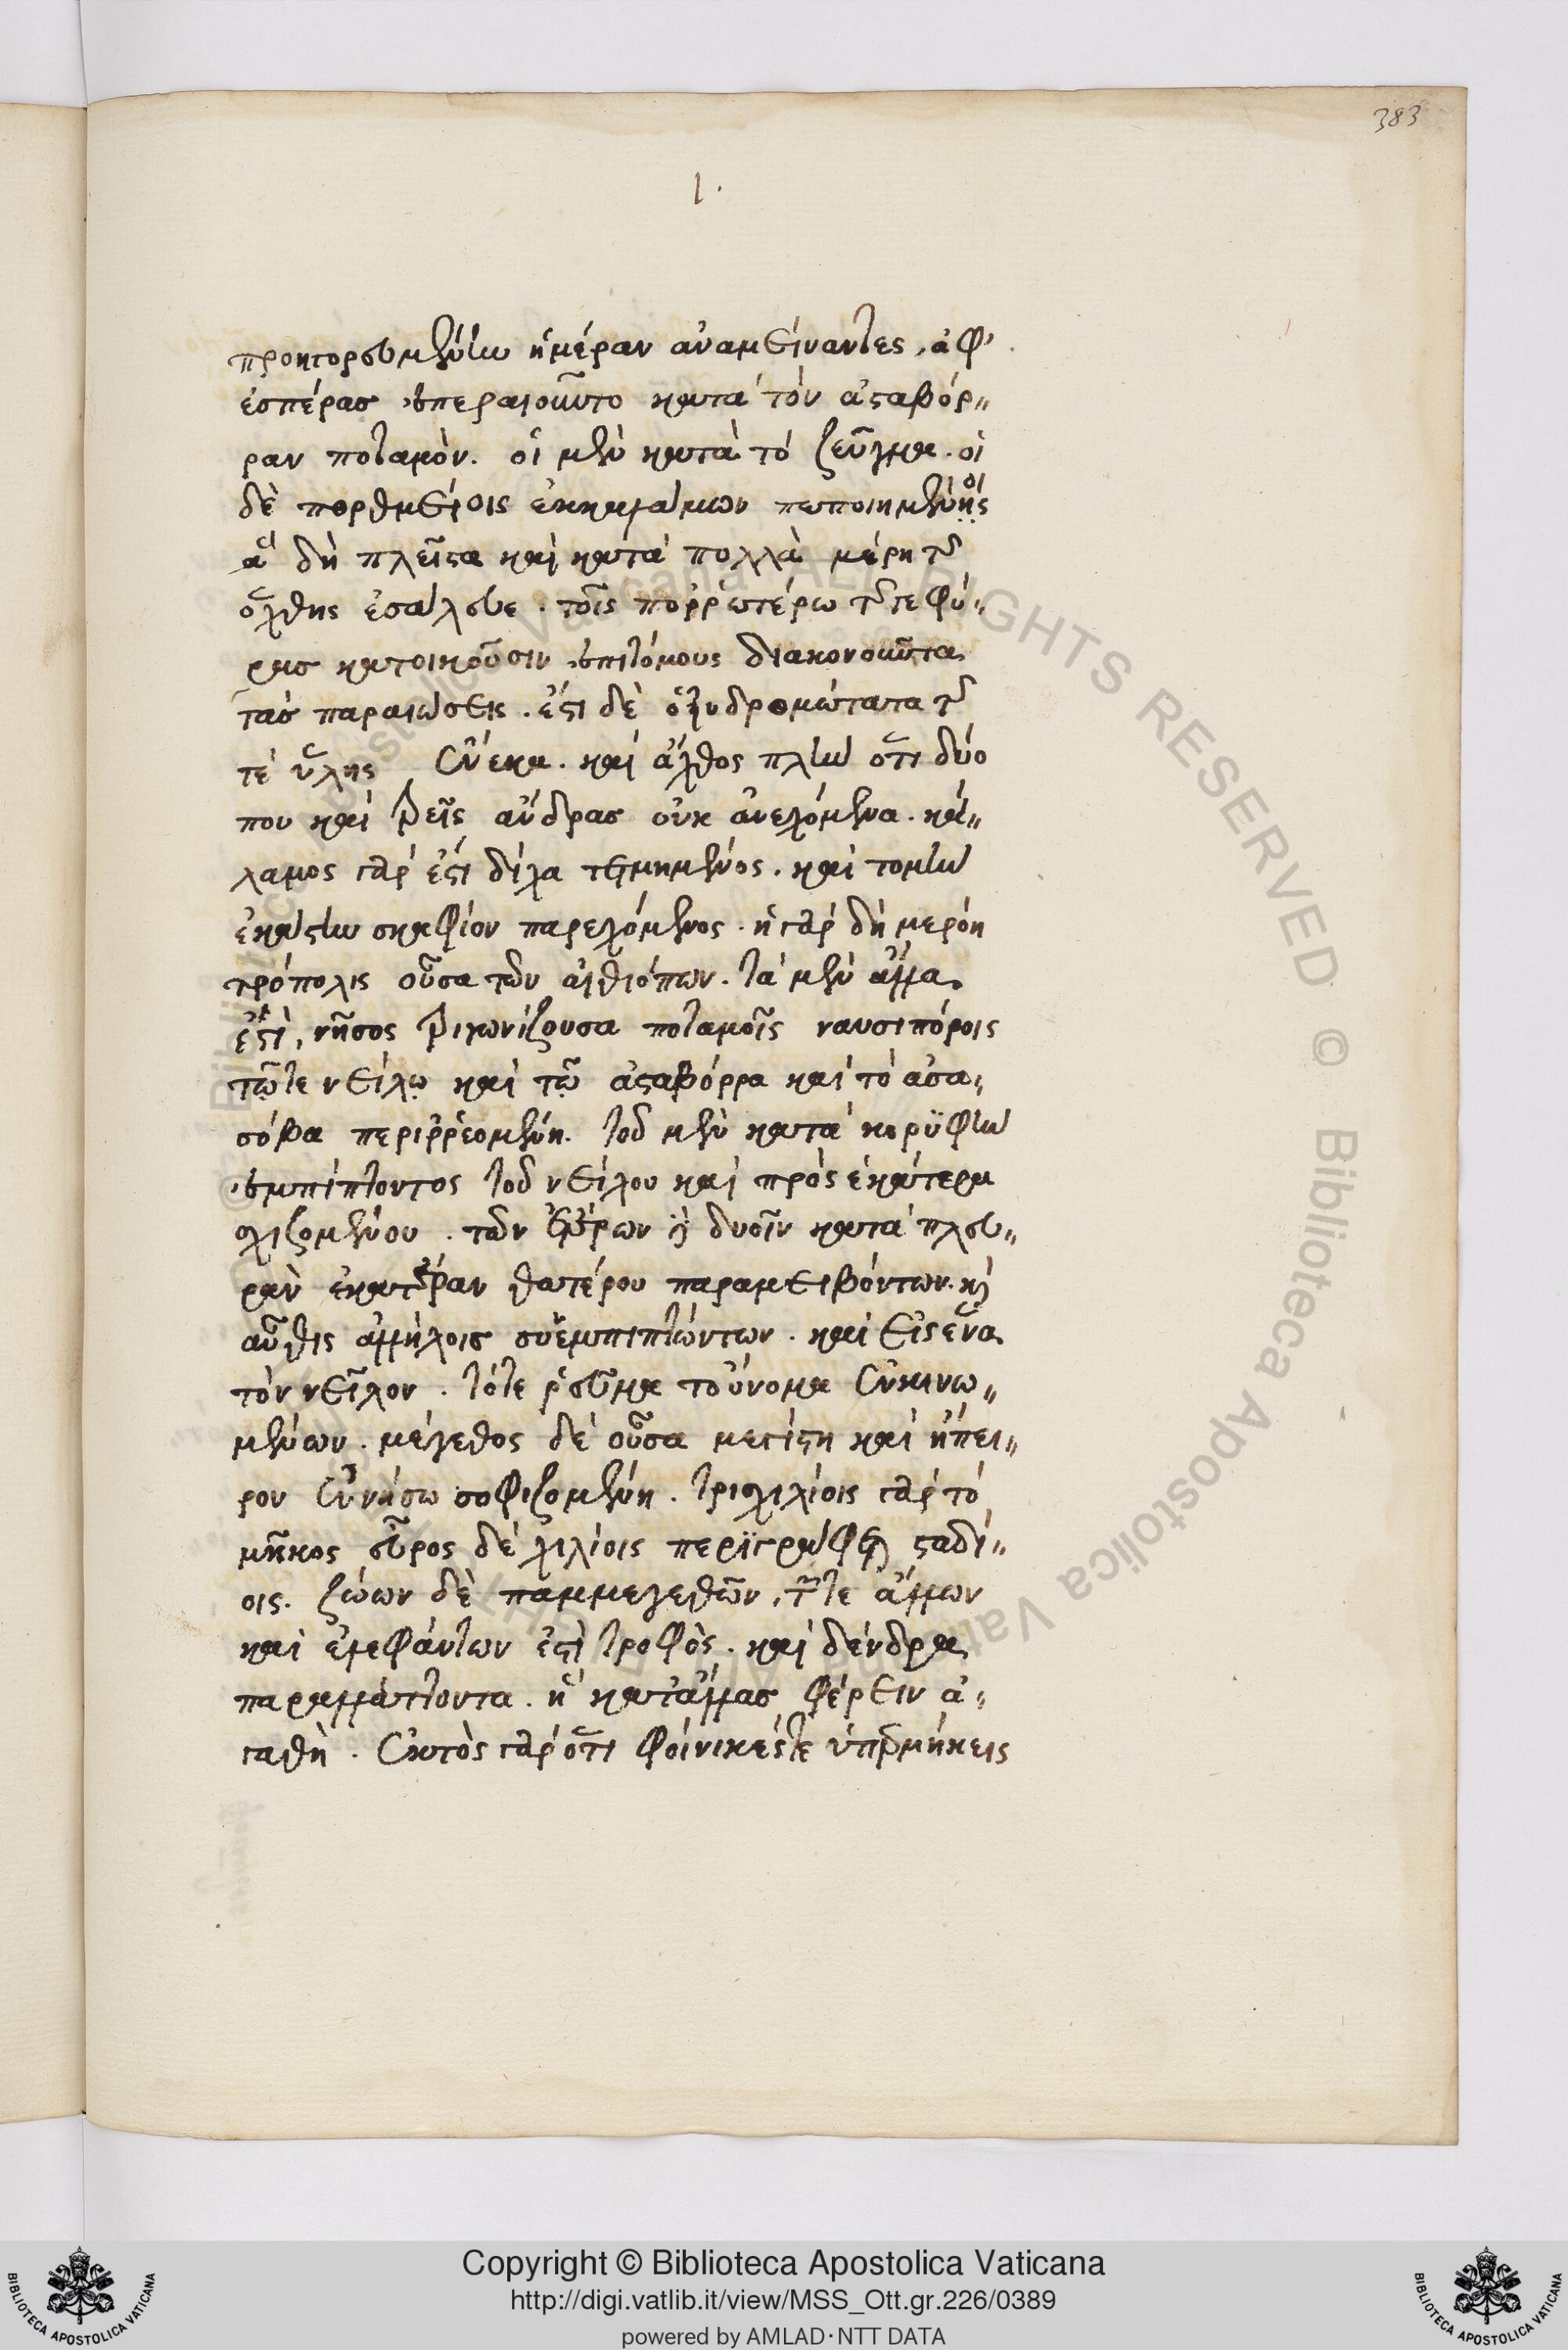 383
1.
προηγορευμένην ἡμέραν ἀναμείναντες, ἀφ'
ἑσπέρας ἐπεραιοῦντο κατὰ τὸν ἀσταβόρ„
ραν ποταμόν. οἱ μὲν κατὰ τὸ ζεῦγμα. οἱ
δὲ πορθμείοις ἐκ καλάμων πεποιημένοις
ἃ δὴ πλεῖστα καὶ κατὰ πολλὰ μέρη τῆς
ὄχθης ἐσάλευε. τοῖς πορρωτέρω τῆς γεφύ„
ρας κατοικοῦσιν ἐπιτόμους διακονοῦντα
τὰς παραιώσεις. ἔστι δὲ ὀξυδρομώτατα τῆς
τὲ ὕλης ἕνεκα. καὶ ἄχθος πλὴν ὅτι δύο
που καὶ τρεῖς ἄνδρας οὐκ ἀνεχόμενα. κά„
λαμος γάρ ἐστι δίχα τετμημένος. καὶ τομὴν
ἑκάστην σκαφίον παρεχόμενος. ἡ γὰρ δὴ μερόη
τρόπολις οὖσα τῶν αἰθιόπων. τὰ μὲν ἄλλα
ἐστὶ, νῆσος τριγωνίζουσα ποταμοῖς ναυσιπόροις
τῷτε νείλῳ καὶ τῷ ἀσταβόρρα καὶ τὸ ἀσα„
σόβα περιρρεομένη. τοῦ μὲν κατὰ κορυφὴν
ἐμπίπτοντος τοῦ νείλου καὶ πρὸς ἑκάτερα
σχιζομένου. τῶν ἑτέρων δυοῖν κατὰ πλευ„
ρὰν ἑκατέραν θατέρου παραμειβόντων. καὶ
αὖθις ἀλλήλοις συνεμπιπτόντων. καὶ εἰς ἕνα
τὸν νεῖλον. τότε ῥεῦμα τοὔνομα ἐκνικω„
μένων. μέγεθος δὲ οὖσα μεγίστη καὶ ἤπει„
ρον ἐν νήσῳ σοφιζομένη. τρισχιλίοις γὰρ τὸ
μῆκος εὖρος δὲ χιλίοις περιγράφεται σταδί„
οις. ζώων δὲ παμμεγεθῶν, τῶντε ἄλλων
καὶ ἐλεφάντων ἐστὶ τροφὸς. καὶ δένδρα
παραλλάττοντα. ἢ κατ' ἄλλας φέρειν ἀ„
γαθὴ. ἐκτὸς γὰρ ὅτι φοίνικέςτε ὑπερμήκεις
Copyright © Biblioteca Apostolica Vaticana
http://digi.vatlib.it/view/MSS_Ott.gr.226/0389
powered by AMLAD·NTT DATA